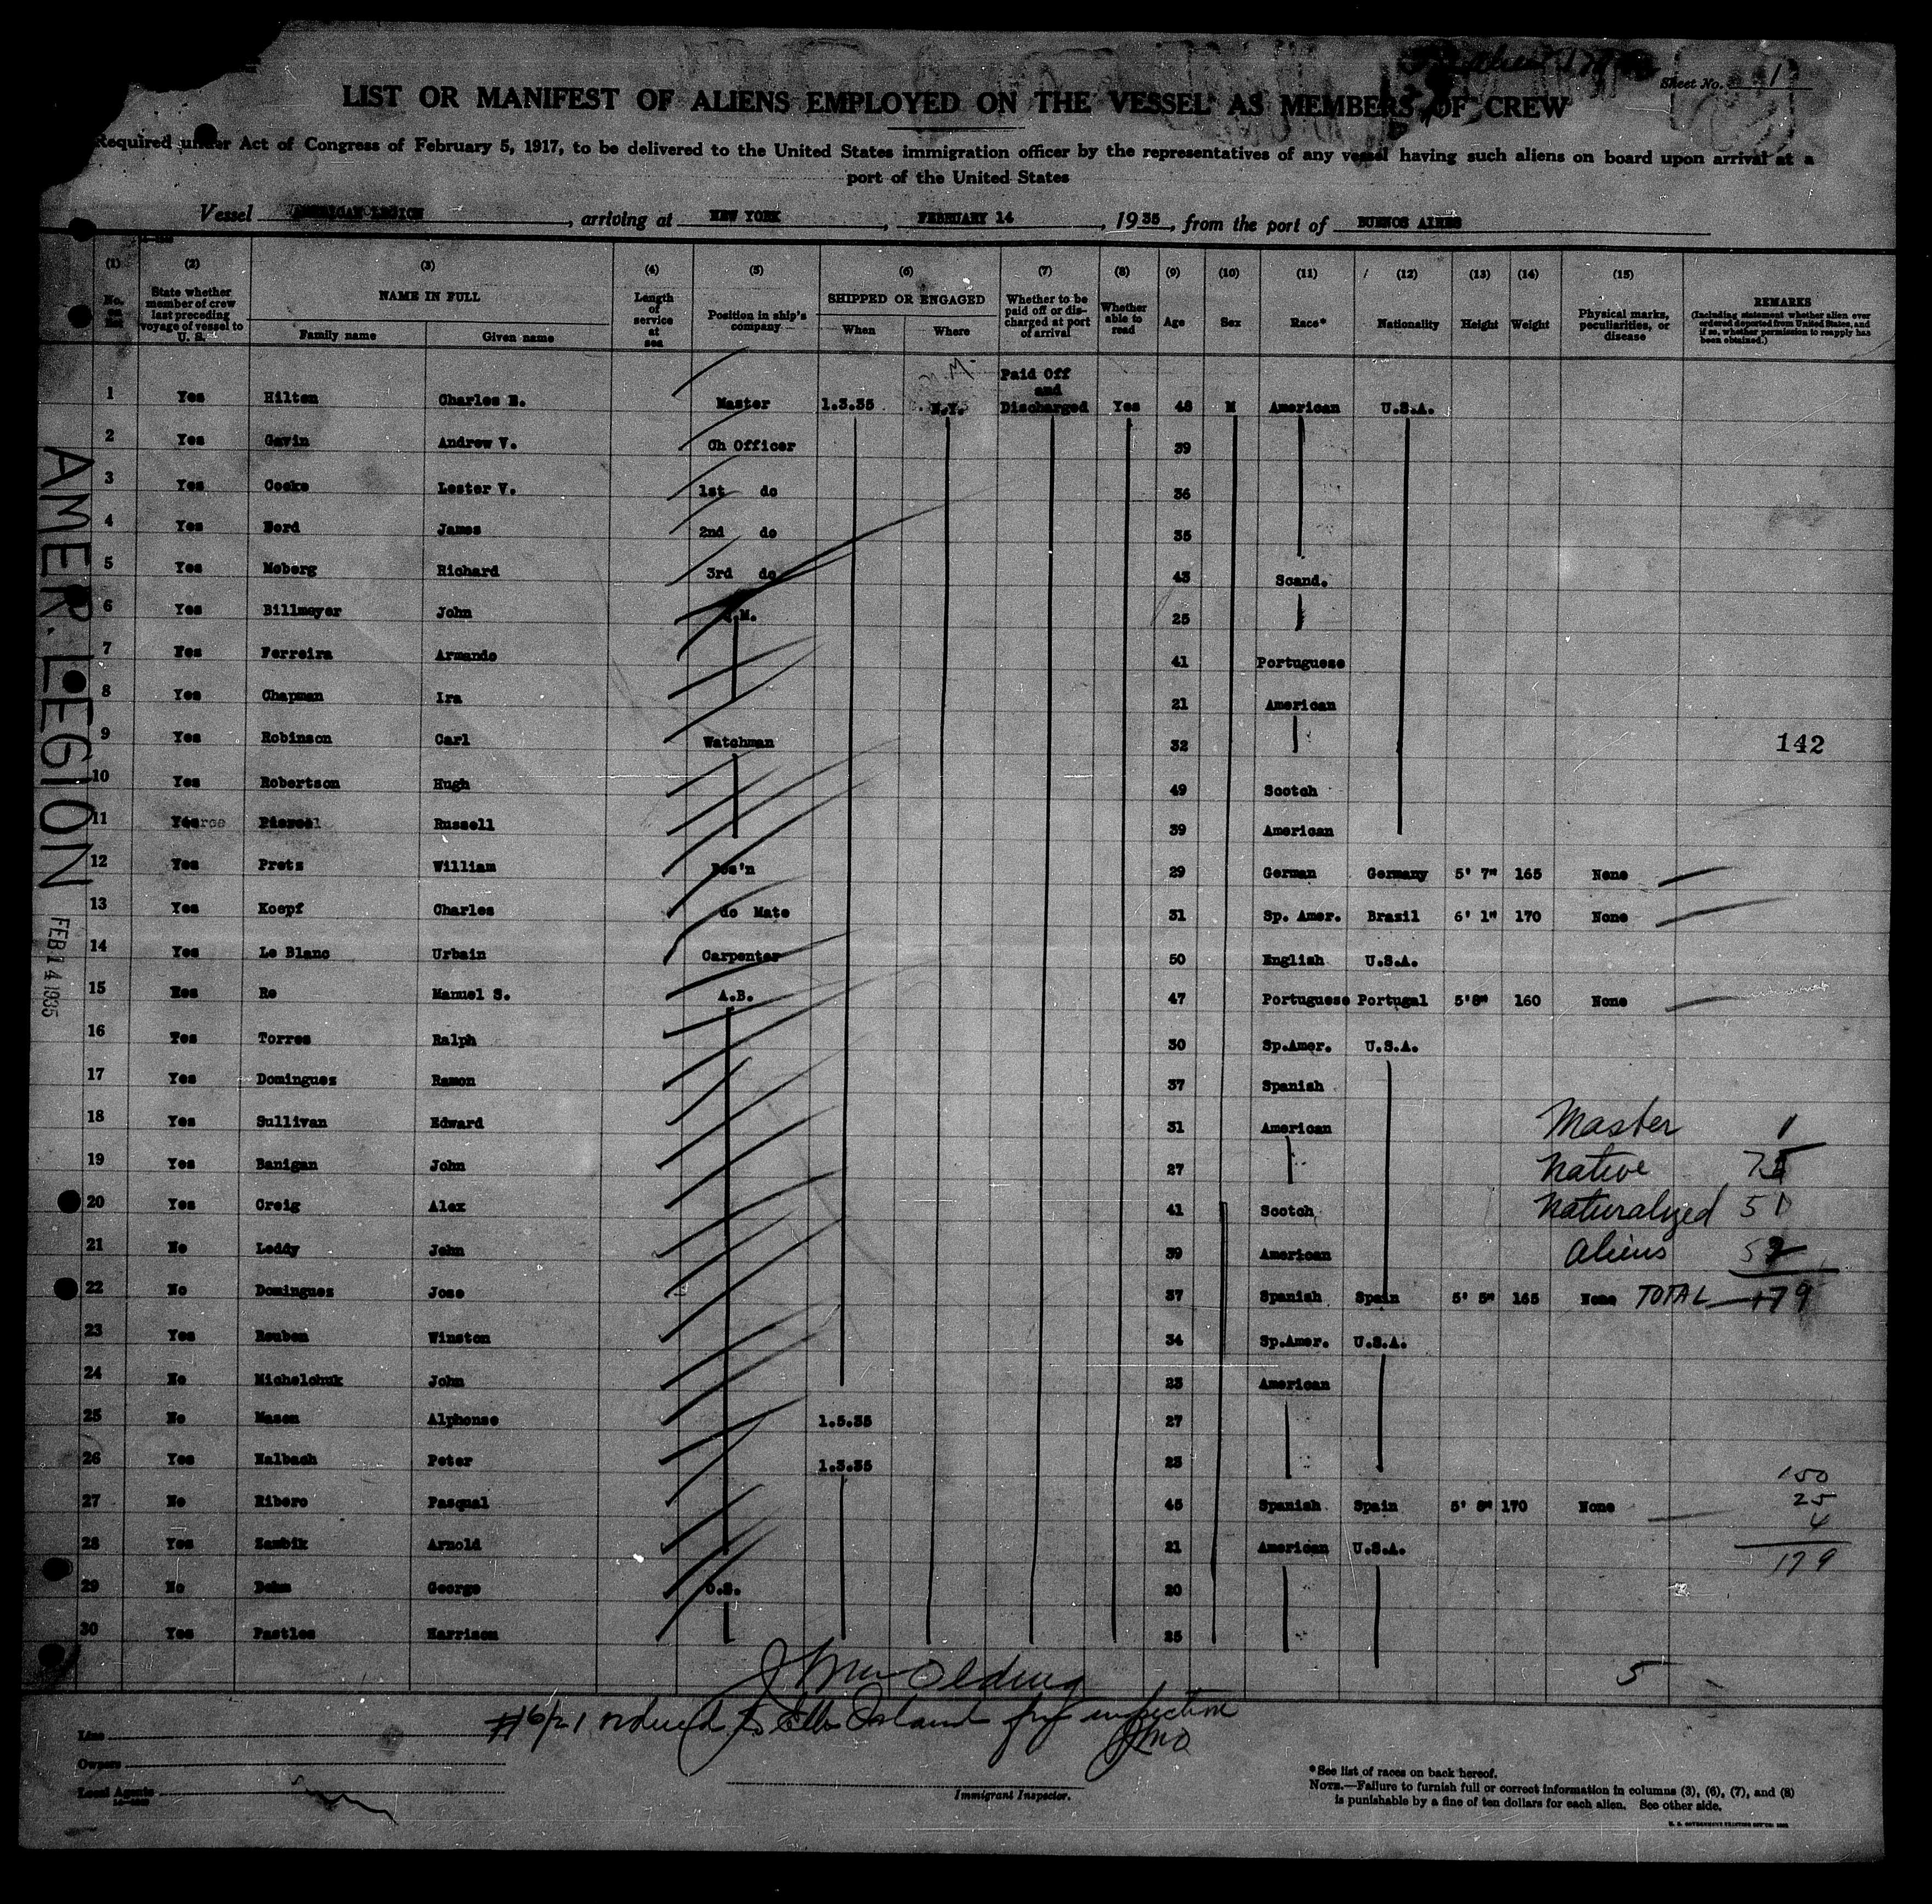 Sheet No. 1
LIST OR MANIFEST OF ALIENS EMPLOYED ON THE VESSEL AS MEMBERS OF CREW
Required under Act of Congress of February 5, 1917, to be delivered to the United States immigration officer by the representatives of any vessel having such aliens on board upon arrival at a
port of the United States
Vessel AMERICAN LEGION, arriving at NEW YORK, FEBRUARY 14, 1935, from the port of BUENOS AIRES
(1) (2) (3) (4) (5) (6) (7) (8) (9) (10) (11) (12) (13) (14) (15)
No. on list
State whether member of crew last preceding voyage of vessel to U. S.
NAME IN FULL
Family name Given name
Length of service at sea
Position in ship's company
SHIPPED OR ENGAGED
When Where
Whether to be paid off or discharged at port of arrival
Whether able to read
Age Sex Race* Nationality Height Weight
Physical marks, peculiarities, or disease
REMARKS
(Including statement whether alien ever ordered deported from United States, and if so, whether permission to reapply has been obtained.)
1 Yes Hilton Charles Master 1.3.35 N.Y. Paid Off and Discharged Yes 48 M American U.S.A.
2 Yes Gavin Andrew V. Ch Officer 39
3 Yes Cooke Lester V. 1st do 36
4 Yes Nord James 2nd do 35
5 Yes Moberg Richard 3rd do 43 Scand.
6 Yes Billmeyer John Q.M. 25
7 Yes Ferreira Armando 41 Portuguese
8 Yes Chapman Ira 21 American
9 Yes Robinson Carl Watchman 32
142
10 Yes Robertson Hugh 49 Scotch
11 Yes Russell 39 American
12 Yes Prets William Bos'n 29 German Germany 5' 7" 165 None
13 Yes Koepf Charles do Mate 31 Sp. Amer. Brazil 6' 1" 170 None
14 Yes Le Blanc Urbain Carpenter 50 English U.S.A.
15 Yes Re Manuel S. A.B. 47 Portuguese Portugal 5'8" 160 None
16 Yes Torres Ralph 30 Sp.Amer. U.S.A.
17 Yes Domingues Ramon 37 Spanish
18 Yes Sullivan Edward 31 American
Master 1
19 Yes Banigan John 27
Native 75
20 Yes Creig Alex 41 Scotch
Naturalized 51
21 No Leddy John 39 American
Aliens 52
22 No Domingues Jose 37 Spanish Spain 5' 5" 165 None
TOTAL 179
23 Yes Reuben Winston 34 Sp.Amer. U.S.A.
24 No Michelchuk John 23 American
25 No Mason Alphonse 1.5.35 27
26 Yes Halbach Peter 1.3.35 23
150
27 No Ribero Pasqual 45 Spanish Spain 5' 8" 170 None
25
4
28 Yes Zambik Arnold 21 American U.S.A.
179
29 No Dohm George O.S. 20
30 Yes Pastles Harrison 25
5
AMER. LEGION
FEB 14 1935
#16/21 ordered to Ellis Island for inspection
JMO
Line
Owners
Local Agents
Immigrant Inspector.
*See list of races on back hereof.
NOTE.—Failure to furnish full or correct information in columns (3), (6), (7), and (8)
is punishable by a fine of ten dollars for each alien. See other side.